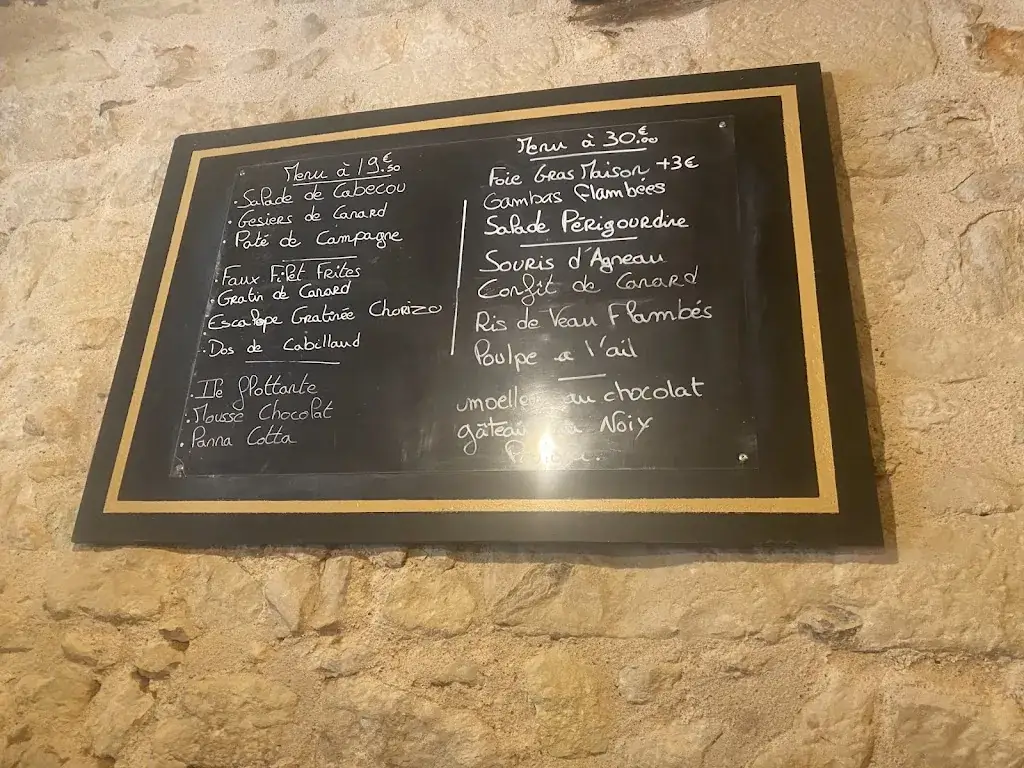 Menu à 19.€50
. Salade de Cabecou
. Gesiers de Canard
. Paté de Campagne
. Faux Filet Frites
. Gratin de Canard
. Escalope Gratinée Chorizo
. Dos de Cabillaud
. Ile flottante
. Mousse Chocolat
. Panna Cotta
Menu à 30.€00
Foie Gras Maison +3€
Gambas flambées
Salade Périgourdine
Souris d'Agneau
Confît de Canard
Ris de Veau Flambés
Poulpe a l'ail
au chocolat
Noix